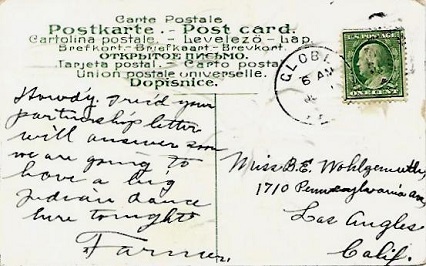 Carte Postale
Postkarte. - Post card.
Cartolina postale. - Levelező-Lap.
Brefkort - Briefkaart - Brevkort.
ОТКРЫТОЕ ПИСЬМО.
Tarjeta postal.
Union postale universelle.
Dopisnice.
GLOBE
6 AM
U.S. POSTAGE
ONE CENT
Howdy, I rec'd your
partnership letter
will answer soon
we are going to
have a big
Indian dance
here tonight
Farmer.
Miss B.E. Wohlgemuth
1710 Pennsylvania Ave
Los Angles
Calif.